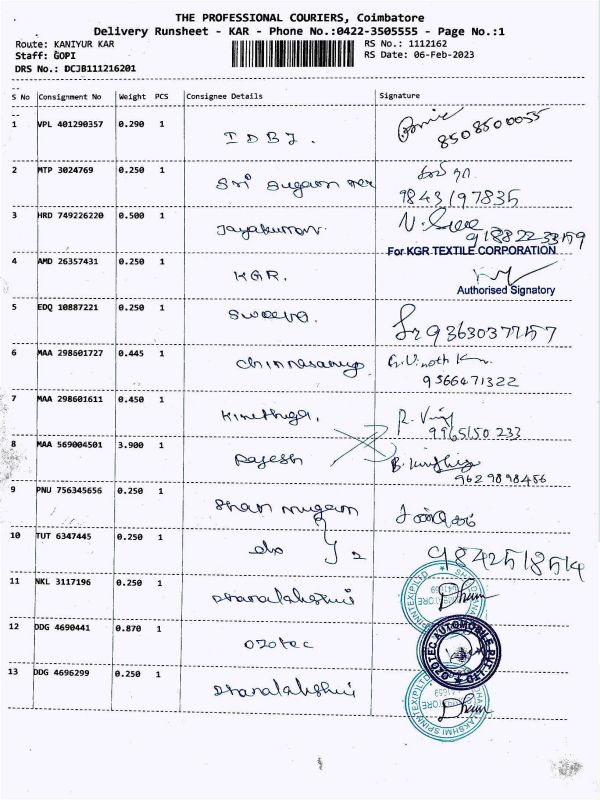 THE PROFESSIONAL COURIERS, Coimbatore
Delivery Runsheet - KAR - Phone No.:0422-3505555 - Page No.:1
Route: KANIYUR KAR RS No.: 1112162
Staff: GOPI RS Date: 06-Feb-2023
DRS No.: DCJB111216201
S No Consignment No Weight PCS Consignee Details Signature
1 VPL 401290357 0.290 1 IDBI. 8508500055
2 MTP 3024769 0.250 1 Sri Sugam 9843197835
3 HRD 749226220 0.500 1 Jayakumar. 91882233159
For KGR TEXTILE CORPORATION
4 AMD 26357431 0.250 1 KGR.
Authorised Signatory
5 EDQ 10887221 0.250 1 9363037757
6 MAA 298601727 0.445 1 Chinnasamy G.Vinoth K
9566471322
7 MAA 298601611 0.450 1 R.
9965150 233
8 MAA 569004501 3.900 1 Rajesh B.
9629898456
9 PNU 756345656 0.250 1 Shanmugam
10 TUT 6347445 0.250 1 do 2 9842518514
11 NKL 3117196 0.250 1 Dhanalakshmi Dham
12 DDG 4690441 0.870 1 Ozotec OZOTEC AUTOMOBILE PVT LTD
13 DDG 4696299 0.250 1 Dhanalakshmi Dham
LAKSHMI SPINNTEX(P)LTD